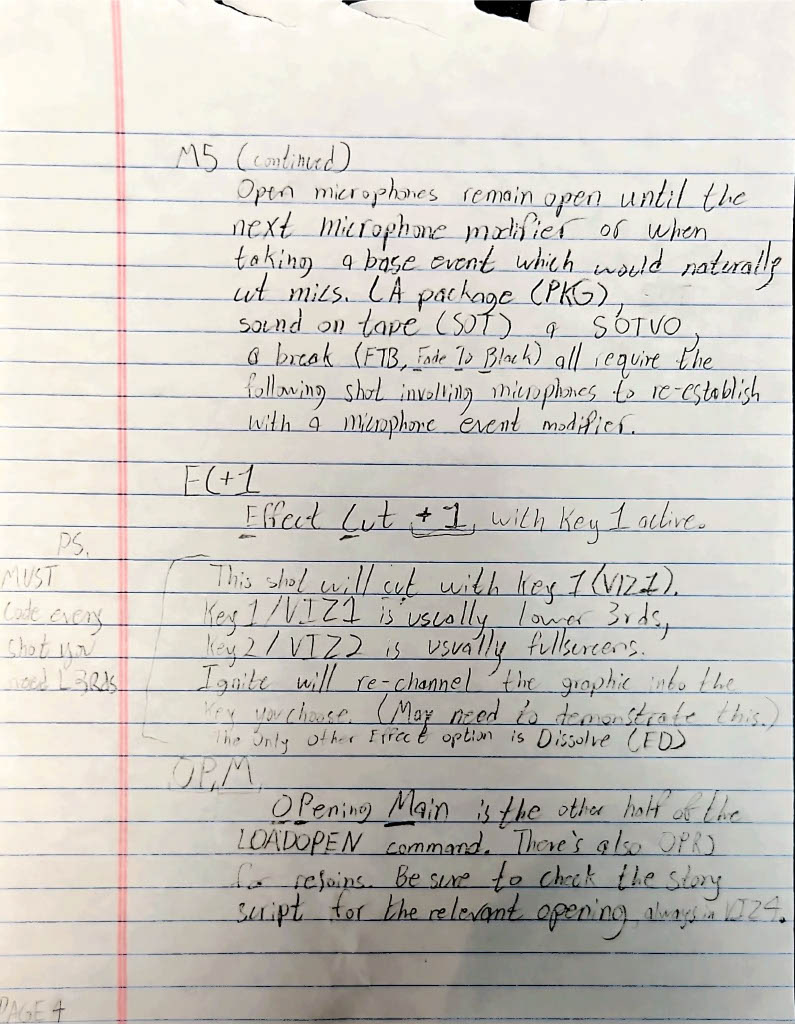 M5 (continued)
Open microphones remain open until the
next microphone modifier or when
taking a base event which would naturally
cut mics. (A package (PKG),
sound on tape (SOT) a SOTVO,
a break (FTB, Fade To Black) all require the
following shot involling microphones to re-establish
with a microphone event modifier.
EC+1
Effect Cut +1, with Key 1 active.
PS.
MUST
Code every
shot you
need L3RDS
This shot will cut with Key 1 (VIZ1).
Key 1/VIZ1 is usually lower 3rds,
Key 2/VIZ2 is usually fullscreens.
Ignite will re-channel the graphic into the
Key you choose. (May need to demonstrate this.)
The Only other Effect option is Dissolve (ED)
OP,M,
OPening Main is the other half of the
LOADOPEN command. There's also OPRJ
for rejoins. Be sure to check the story
script for the relevant opening, always in VIZ4.
PAGE 4